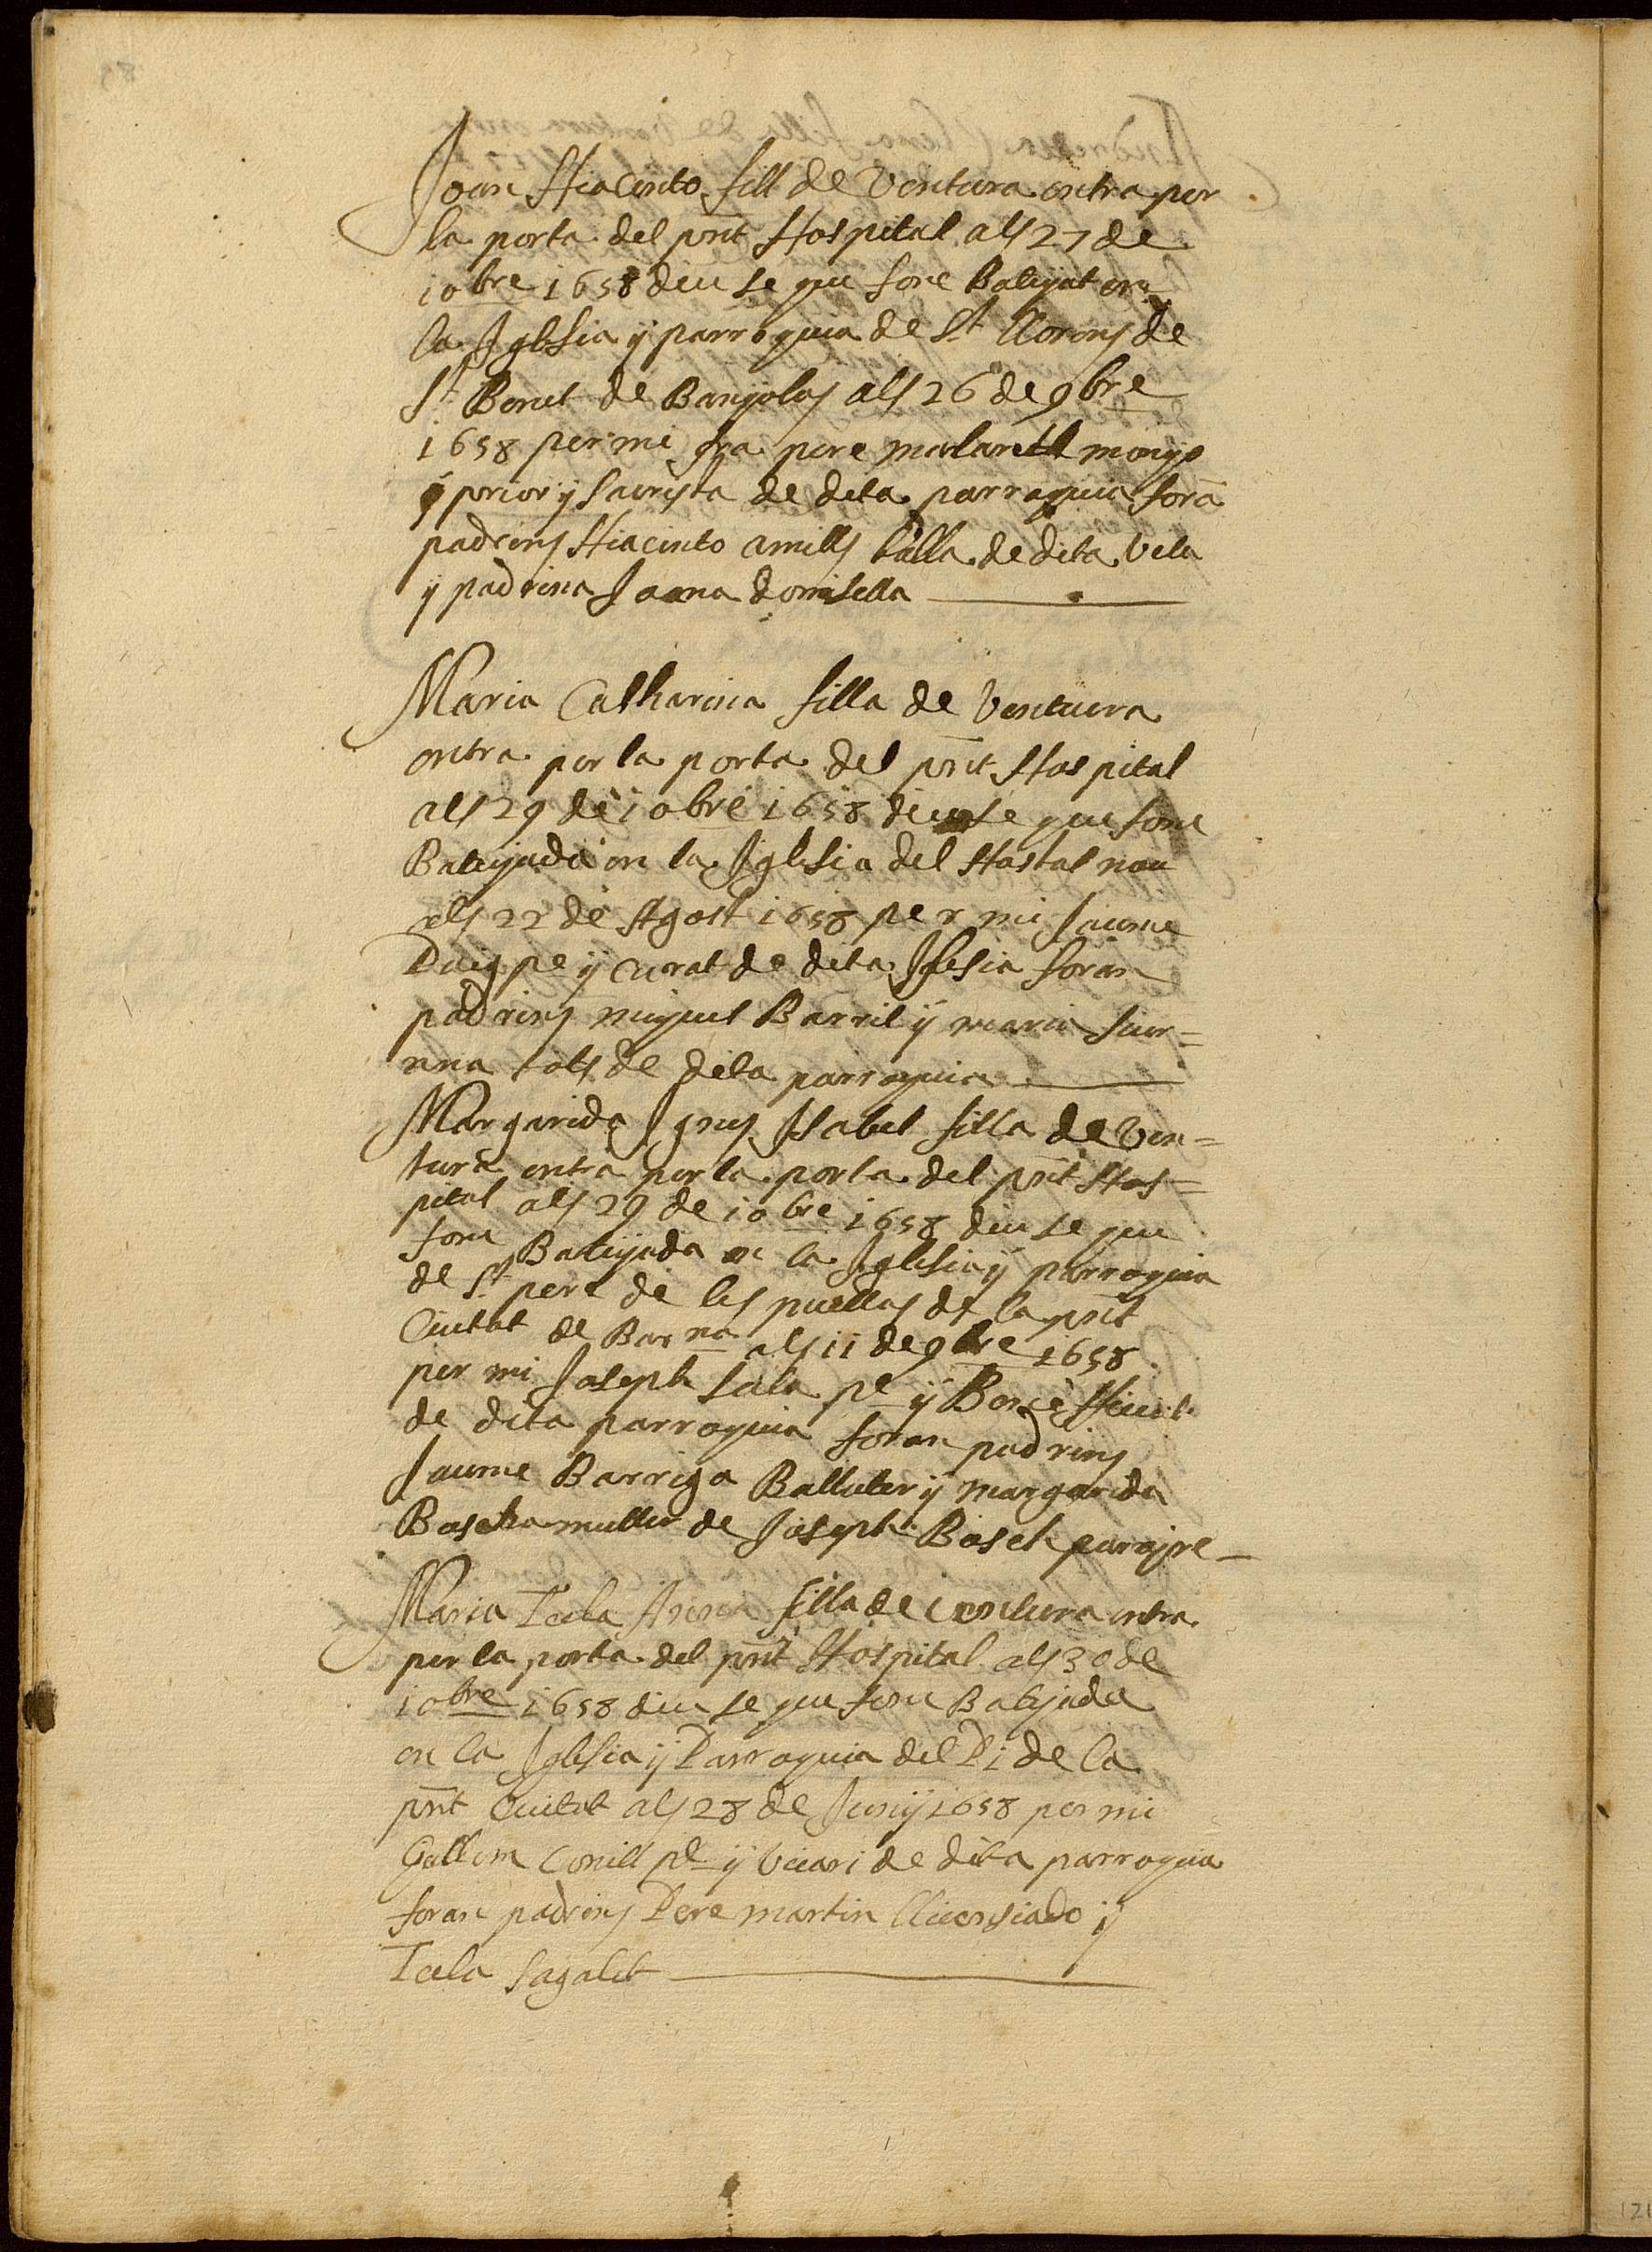 Joan Hiacinto fill de Ventura entra per
la porta del pñt Hospital als 27 de
10bre 1658 diu se que fonc Batyat en
la Iglesia ÿ parroquia de St Llorens de
St Benet de Banyolas als 26 de 9bre
1658 per mi fra pere malarell monjo
ÿ prior ÿ sacrista de dita parroquia forã
padrins Hiacinto amills balla de dita vila
ÿ padrina Joana donsella
Maria Catharina filla de Ventura
entra per la porta del pñt Hospital
als 29 de 10bre 1658 diu se que fonc
Batyada en la Iglesia del Hostal nou
als 22 de Agost 1658 per mi Jaume
Puig pe ÿ curat de dita Iglesia foran
padrins miquel Barril ÿ maria Sur=
nna tots de dita parroquia
Margarida Ignes Isabel filla de Ven=
tura entra per la porta del pñt Hos=
pital als 29 de 10bre 1658 diu se que
fonc Batyada en la Iglesia ÿ parroquia
de St pere de les puellas de la pñt
Ciutat de Barna als 11 de 9bre 1658
per mi Joseph Sala pe ÿ
de dita parroquia foran padrins
Jaume Barriga Balluter ÿ margarida
muller de Joseph Bosch perayre
Maria Tecla filla de Ventura entra
per la porta del pñt Hospital als 30 de
10bre 1658 diu se que fonc Batyada
en la Iglesia ÿ Parroquia del Pi de la
pñt Ciutat als 28 de Juny 1658 per mi
Gullem Conill pe ÿ vicari de dita parroquia
foran padrins Pere martin llicensiado ÿ
Tecla Sagalet